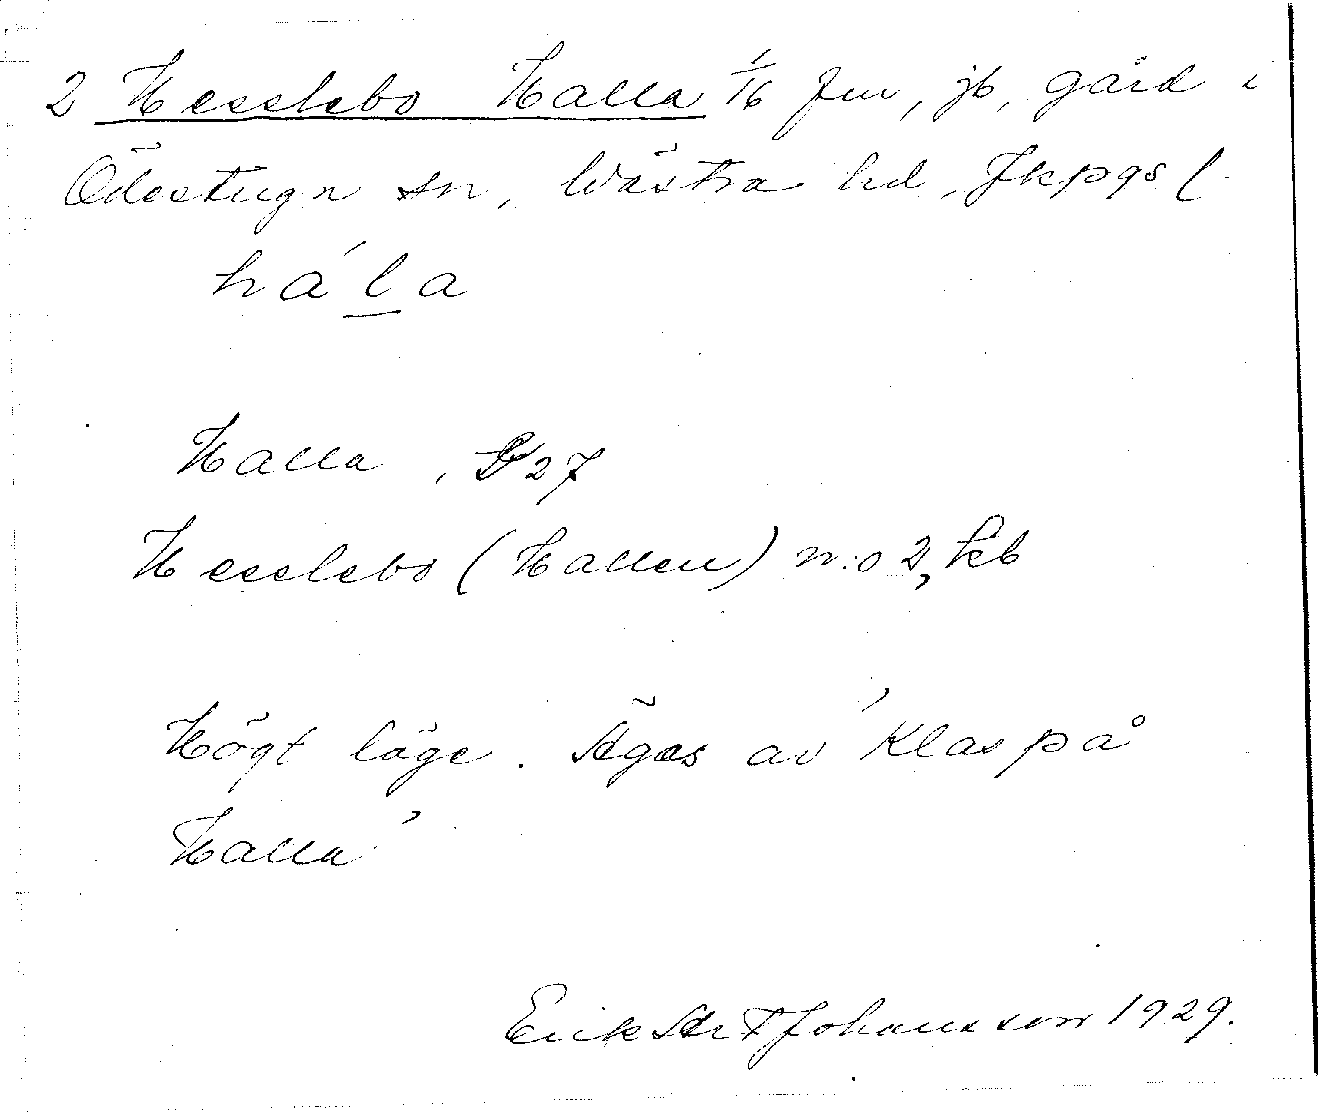 2 Hesslebo Halla 1/16 fm, jb, gård i
Ödestugn sn, Västra hd, Jkpgs l
hála
Halla, 27
Hesslebo (Hallen) n:o 2, kb
Högt läge. Äges av 'Klas på
Halla'
Erik Johansson 1929.